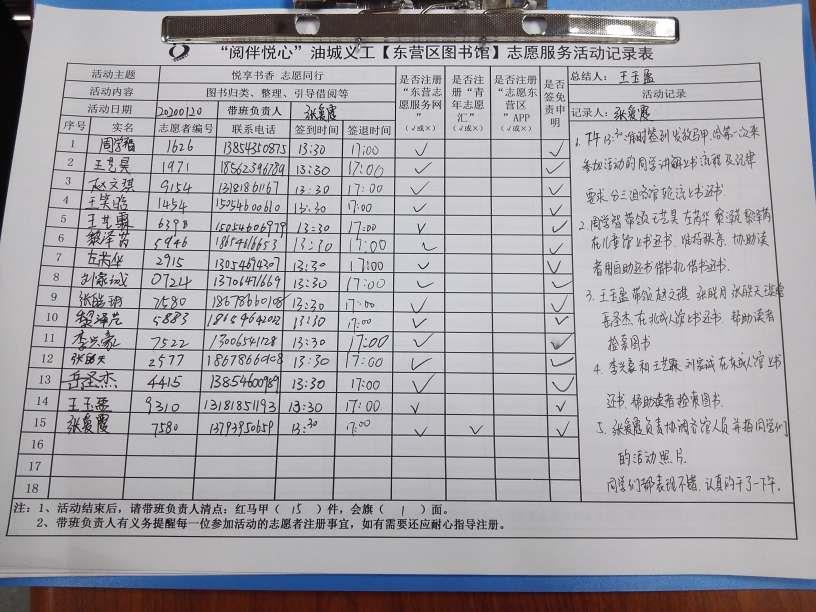 “阅伴悦心”油城义工【东营区图书馆】志愿服务活动记录表
活动主题 悦享书香 志愿同行
活动内容 图书归类、整理、引导借阅等
活动日期 20200120 带班负责人 张爱霞
是否注册“东营志愿服务网”(√或×)
是否注册“青年志愿汇”(√或×)
是否注册“志愿东营区”APP(√或×)
是否签免责申明
总结人: 王玉盈
活动记录
记录人: 张爱霞
序号 实名 志愿者编号 联系电话 签到时间 签退时间
1 周学智 1626 13854350875 13:30 17:00 √ √
2 王艺昊 1971 18562396789 13:30 17:00 √ √
3 赵文琪 9154 13181861167 13:30 17:00 √ √
4 王笑晗 1454 15054600610 13:30 17:00 √ √
5 王艺霖 6398 15054606979 13:30 17:00 √ √
6 黎泽芮 5946 13:30 17:00 √ √
7 左芮华 2915 13054694307 13:30 17:00 √ √
8 0724 13706471669 13:30 17:00 √ √
9 7580 13:30 17:00 √ √
10 5883 13:30 17:00 √ √
11 李兴豪 7522 13006541128 13:30 17:00 √ √
12 2577 13:30 17:00 √ √
13 岳圣杰 4415 13854600989 13:30 17:00 √ √
14 王玉盈 9310 13181851193 13:30 17:00 √ √
15 张爱霞 7580 13793950659 13:30 17:00 √ √ √
16
17
18
1. 下午13:30准时签到发放马甲,给第一次来
参加活动的同学讲解上书流程及纪律
要求,分三组各馆轮流上书还书.
2. 周学智带领王艺昊 左芮华
在儿童馆上书还书.维持秩序,协助读
者用自助还书借书机借书还书.
3. 王玉盈带领赵文琪
岳圣杰,在北成人馆上书还书.帮助读者
检索图书
4. 李兴豪和王艺霖 在东成人馆上书
还书.帮助读者检索图书.
5. 张爱霞负责协调各馆人员并拍同学们
的活动照片.
同学们都表现不错,认真的干了一下午.
注:1、活动结束后,请带班负责人清点:红马甲( 15 )件,会旗( 1 )面。
2、带班负责人有义务提醒每一位参加活动的志愿者注册事宜,如有需要还应耐心指导注册。